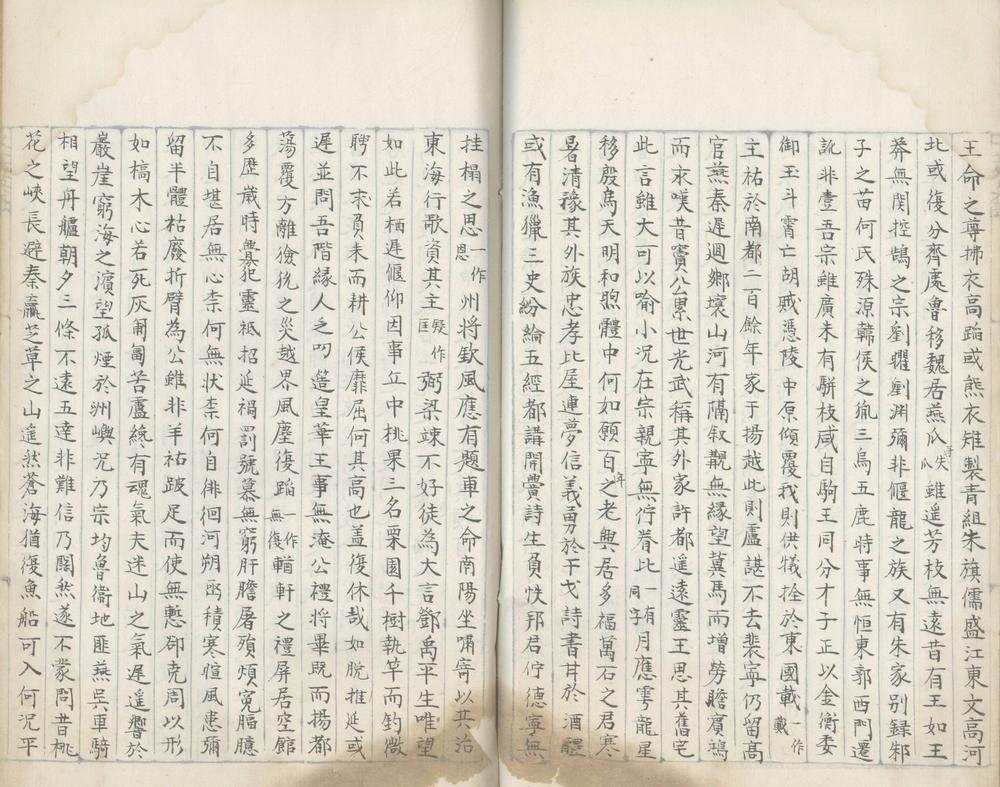 王命之尊拂衣高蹈或熊衣雉製青組朱旗儒盛江東文高河
北或復分齊處魯移魏居燕瓜疑失瓜雖遥芳枝無遠昔有王如王
莽無関控鵠之宗劉曜劉渊彌非偃龍之族又有朱家別録邾
子之苗何氏殊源韓侯之胤三烏五鹿時事無恒東郭西門遷
訛非壹吾宗雖廣未有駢枝咸自騎王同分才子正以金衡委
御玉斗霄亡胡賊憑陵中原傾覆我則供犠牷於東國載一作戴
主祐於南都二百餘年家于揚越此則盧諶不去裴寧仍留高
官燕秦遲迴鄉壤山河有隔叙覯無縁望冀馬而增勞瞻賓鴻
而永嘆昔竇公累世光武稱其外家許都遥遠靈王思其舊宅
此言雖大可以喻小況在宗親寧無佇眷比一有同字月應雩龍星
移殷鳥天明和煦體中何如願百之老興居多福萬石之君寒
暑清豫其外族忠孝比屋連夢信義勇於干戈詩書甘於酒醴
或有漁獵三史紛綸五經都講開黌詩生負帙邦君佇德寧無
挂榻之思一作恩州將欽風應有題車之命南陽坐嘯寄以共治
東海行歌資其主疑作匡弼梁竦不好徒為大言鄧禹平生唯望
如此若栖遲偃仰因事丘中桃果三名栗園千樹執竿而釣微
聘不求負耒而耕公侯靡屈何其高也盖復休哉如脫推延或
遲並問吾階縁人之叨簉皇華王事無淹公禮將畢既而揚都
蕩覆方離獫狁之災越界風塵復蹈一作無復輶軒之禮屏居空館
多歷歲時舋犯靈祗招延禍罰號慕無窮肝膽屠殞煩寃膈臆
不自堪居無心柰何無狀柰何自徘徊河朔亟積寒暄風患彌
留半體枯廢折臂為公雖非羊祜跛足而使無慙郤克周以形
如槁木心若死灰匍匐苦廬纔有魂氣夫迷山之氣遲遥響於
巖崖窮海之濵望孤煙於洲嶼況乃宗均魯衛地匪燕吳車騎
相望丹艫朝夕三條不遠五達非難信乃闊然遂不蒙問昔桃
花之峽長避秦嬴芝草之山遥然蒼海猶復魚船可入何況平